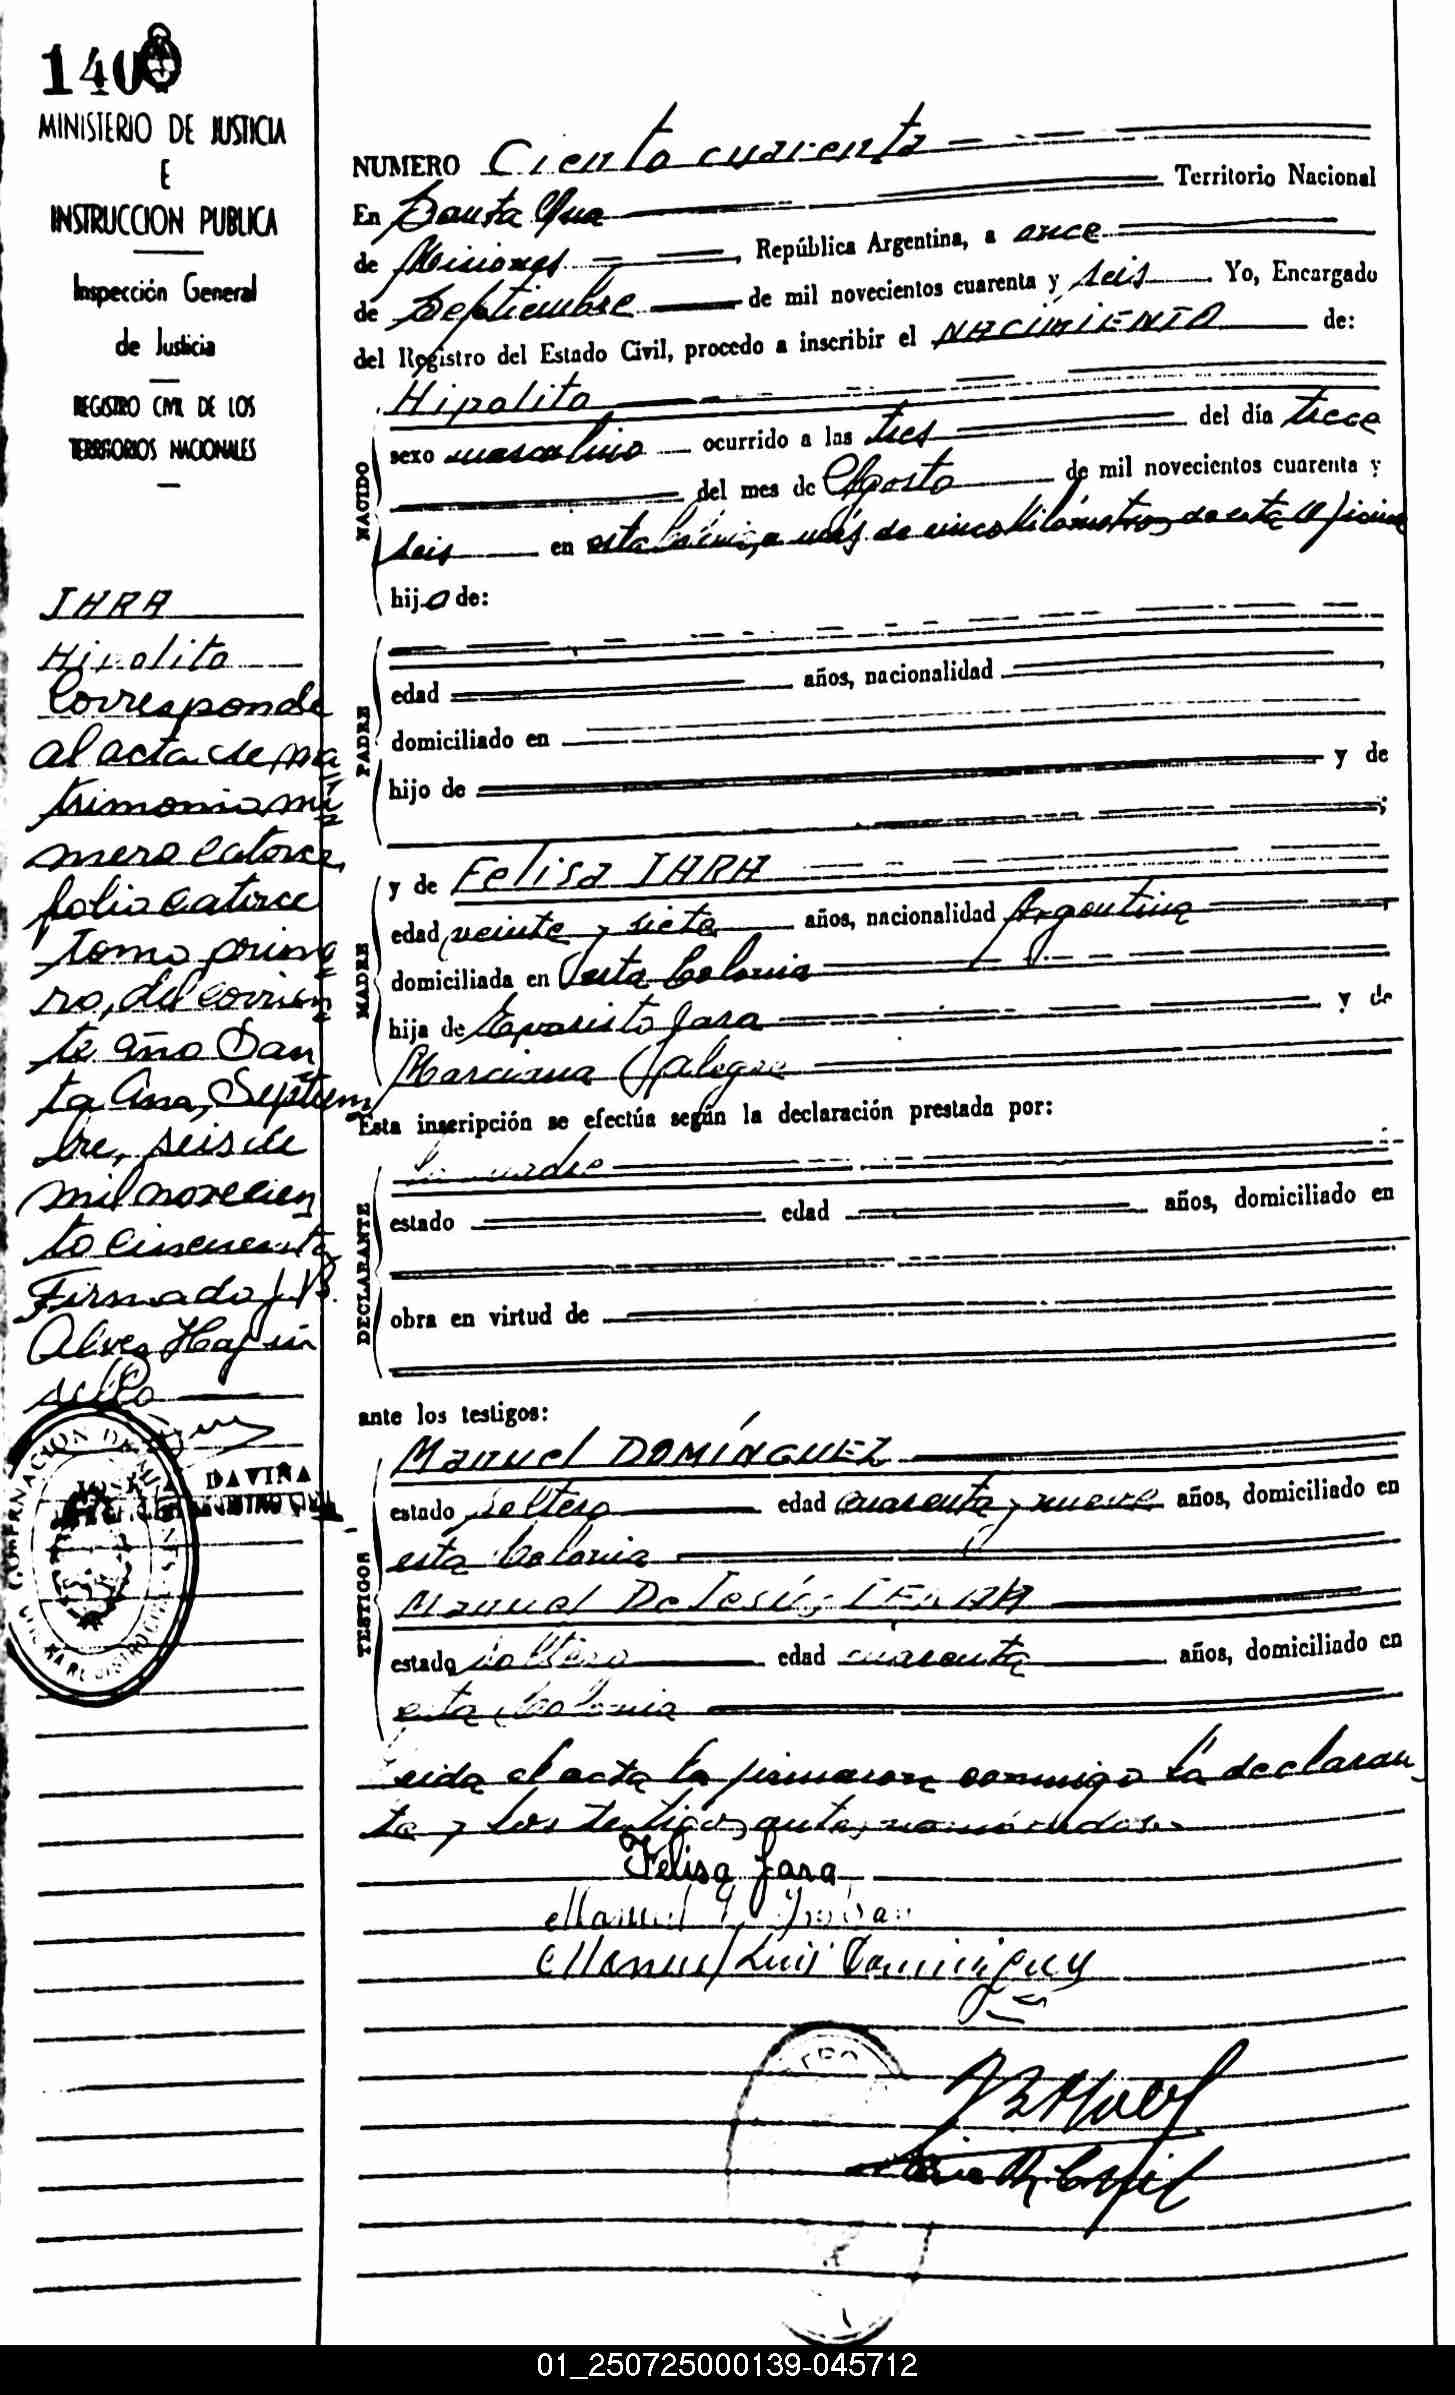 140
MINISTERIO DE JUSTICIA
E
INSTRUCCION PUBLICA
Inspección General
de Justicia
REGISTRO CIVIL DE LOS
TERRITORIOS NACIONALES
JARA
Hipolito
Corresponde
al acta de ma
trimonio nú
mero catorce,
folio catorce
tomo prime
ro, del corrien
te año San
ta Ana, Septiem
bre, seis de
mil novecien
to cincuenta
Firmado J.B.
Alves Hay un
sello
GOBERNACION DE MISIONES
JOSE DAVIÑA
REGISTRO CIVIL
NUMERO Ciento cuarenta
En Santa Ana Territorio Nacional
de Misiones, República Argentina, a once
de Septiembre de mil novecientos cuarenta y seis. Yo, Encargado
del Registro del Estado Civil, procedo a inscribir el NACIMIENTO de:
NACIDO
Hipolito
sexo masculino ocurrido a las tres del día trece
del mes de Agosto de mil novecientos cuarenta y
seis en esta Colonia, a más de cinco kilómetros de esta Oficina
hijo de:
PADRE
edad años, nacionalidad
domiciliado en
hijo de y de
;
MADRE
y de Felisa JARA
edad veinte y siete años, nacionalidad Argentina
domiciliada en esta Colonia
hija de Evaristo Jara y de
Marciana
Esta inscripción se efectúa según la declaración prestada por:
DECLARANTE
la madre
estado edad años, domiciliado en
obra en virtud de
ante los testigos:
TESTIGOS
Manuel DOMÍNGUEZ
estado soltero edad cuarenta y nueve años, domiciliado en
esta Colonia
Manuel De Jesús
estado soltero edad cuarenta años, domiciliado en
esta Colonia
Leida el acta la firmaron conmigo la declaran
te y los testigos antes nombrados.
Felisa Jara
Manuel
Manuel Luis Dominguez
01_250725000139-045712